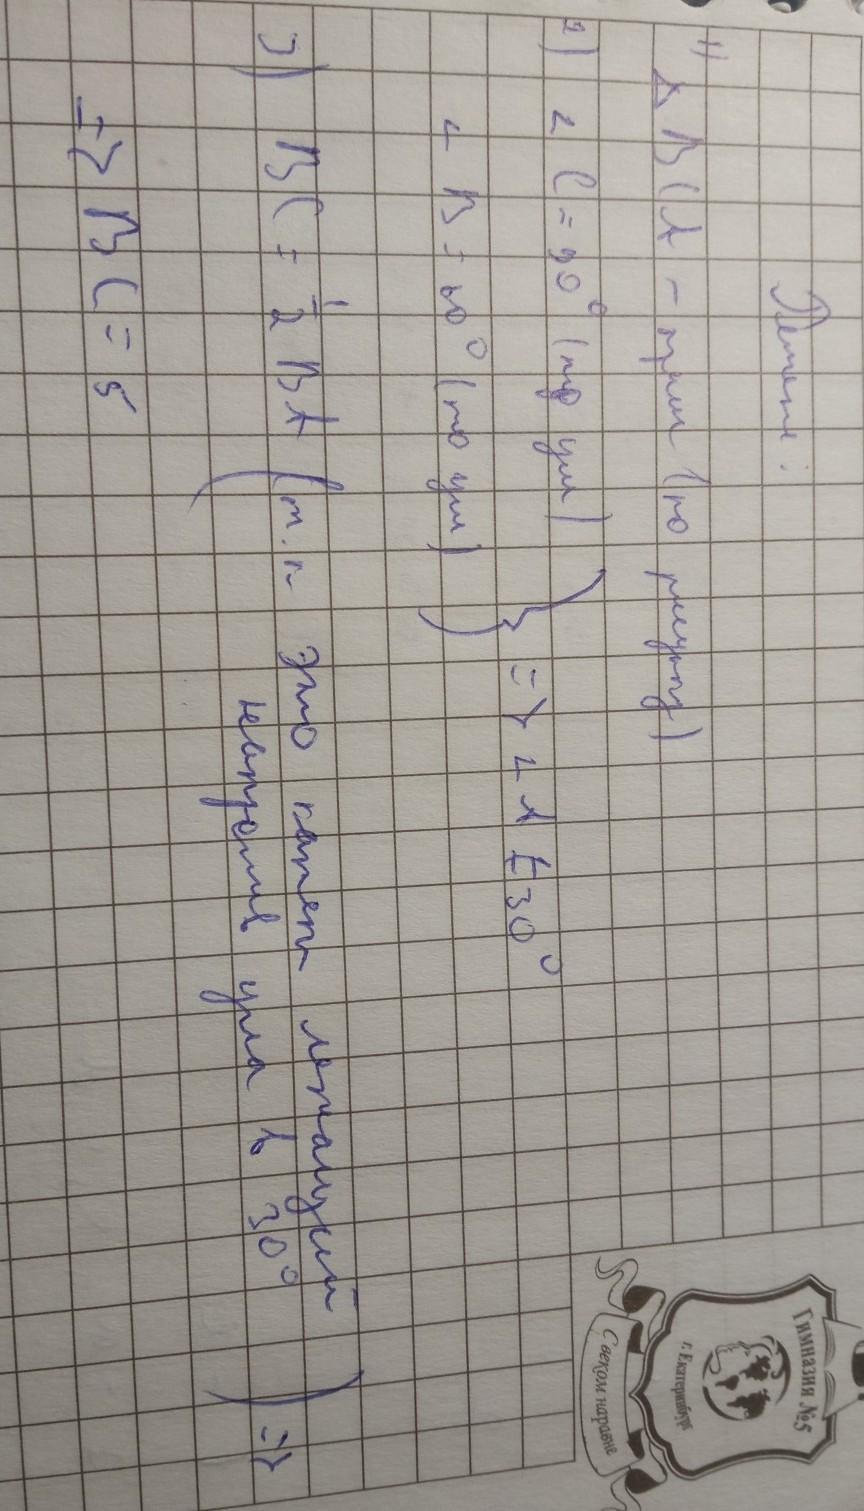 Решение:
1) △ BCA - прям (по рисунку)
2) ∠ C = 90° (по усл)
∠ B = 60° (по усл)
} => ∠ A = 30°
3) BC = 1/2 BA (т.к это катет лежащий
напротив угла в 30°) =>
=> BC = 5
Гимназия №5
г. Екатеринбург
С веком наравне